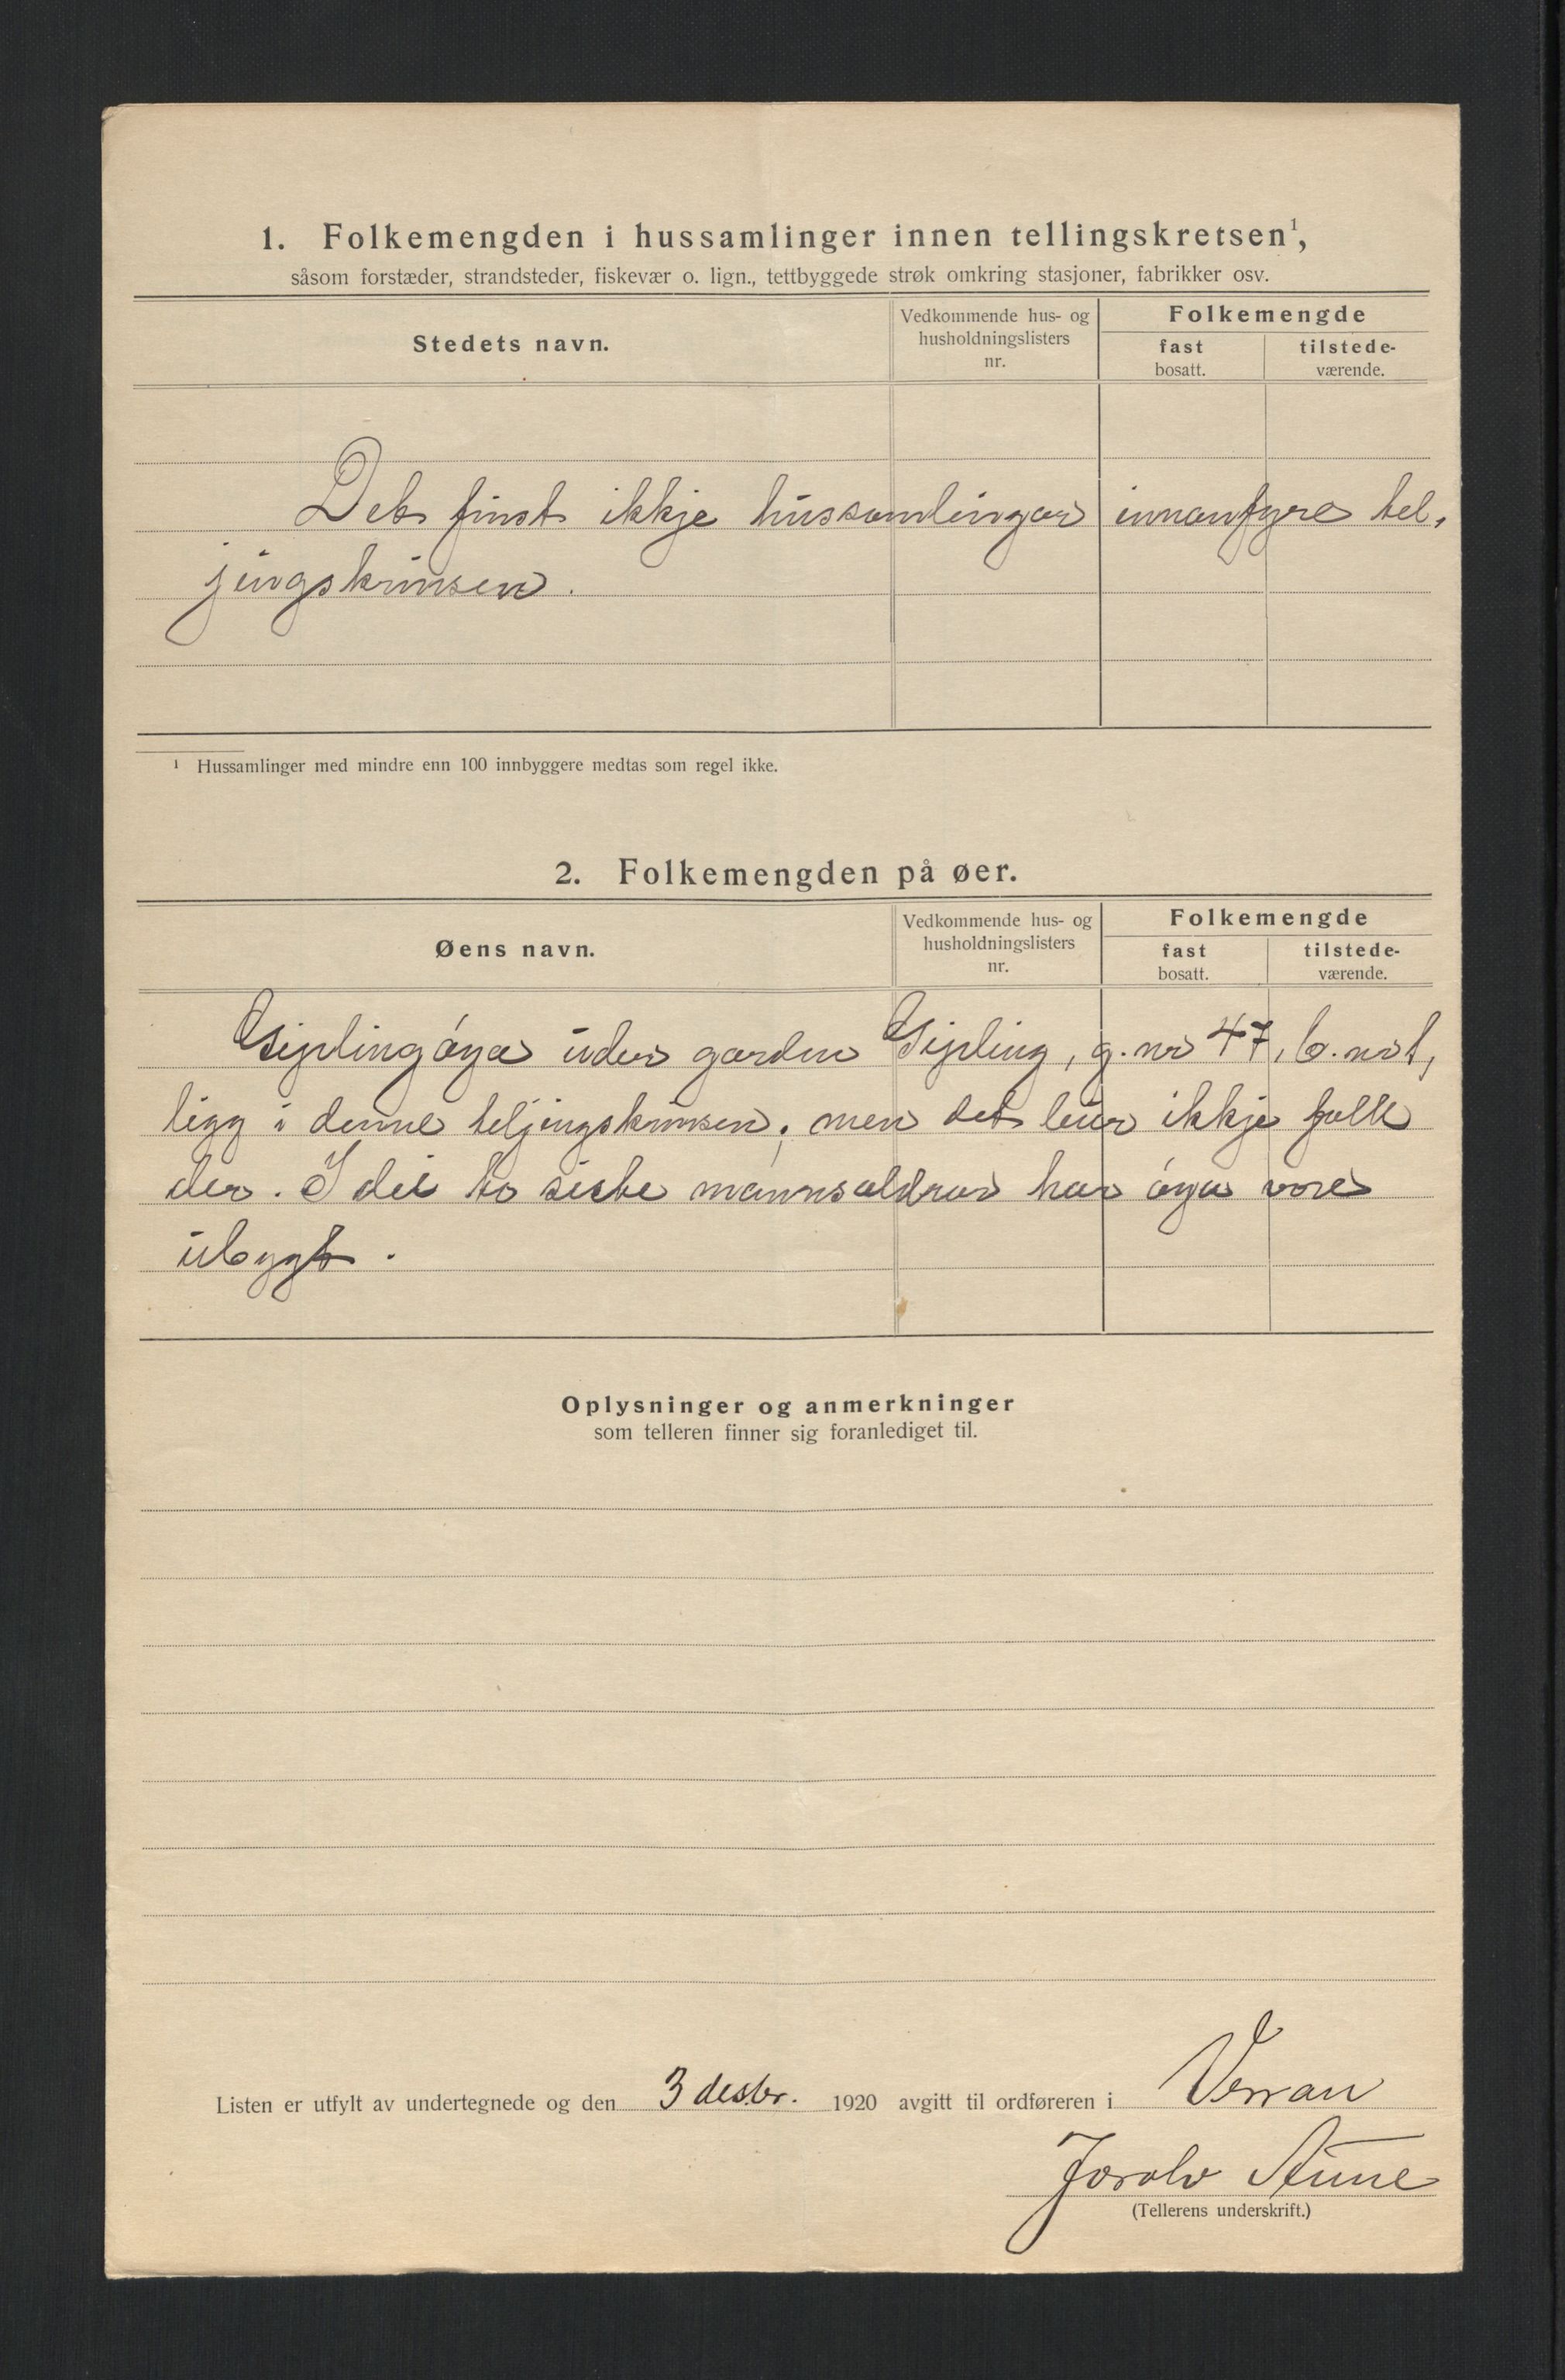 1. Folkemengden i hussamlinger innen tellingskretsen¹,
såsom forstæder, strandsteder, fiskevær o. lign., tettbyggede strøk omkring stasjoner, fabrikker osv.
Stedets navn.
Vedkommende hus- og
husholdningslisters
nr.
Folkemengde
fast
bosatt.
tilstede-
værende.
Det finst ikkje hussamlingar innanfyre tel-
jingskrinsen.
¹ Hussamlinger med mindre enn 100 innbyggere medtas som regel ikke.
2. Folkemengden på øer.
Øens navn.
Vedkommende hus- og
husholdningslisters
nr.
Folkemengde
fast
bosatt.
tilstede-
værende.
Gipling óya under garden Gipling, g. nr 47, b. nr 1,
ligg i denne teljingskrinsen; men det lever ikkje folk
der. I dei to siste mannsaldrar har óya vore
ubygt.
Oplysninger og anmerkninger
som telleren finner sig foranlediget til.
Listen er utfylt av undertegnede og den 3 desbr. 1920 avgitt til ordføreren i Verran
Jorolv Aune
(Tellerens underskrift.)